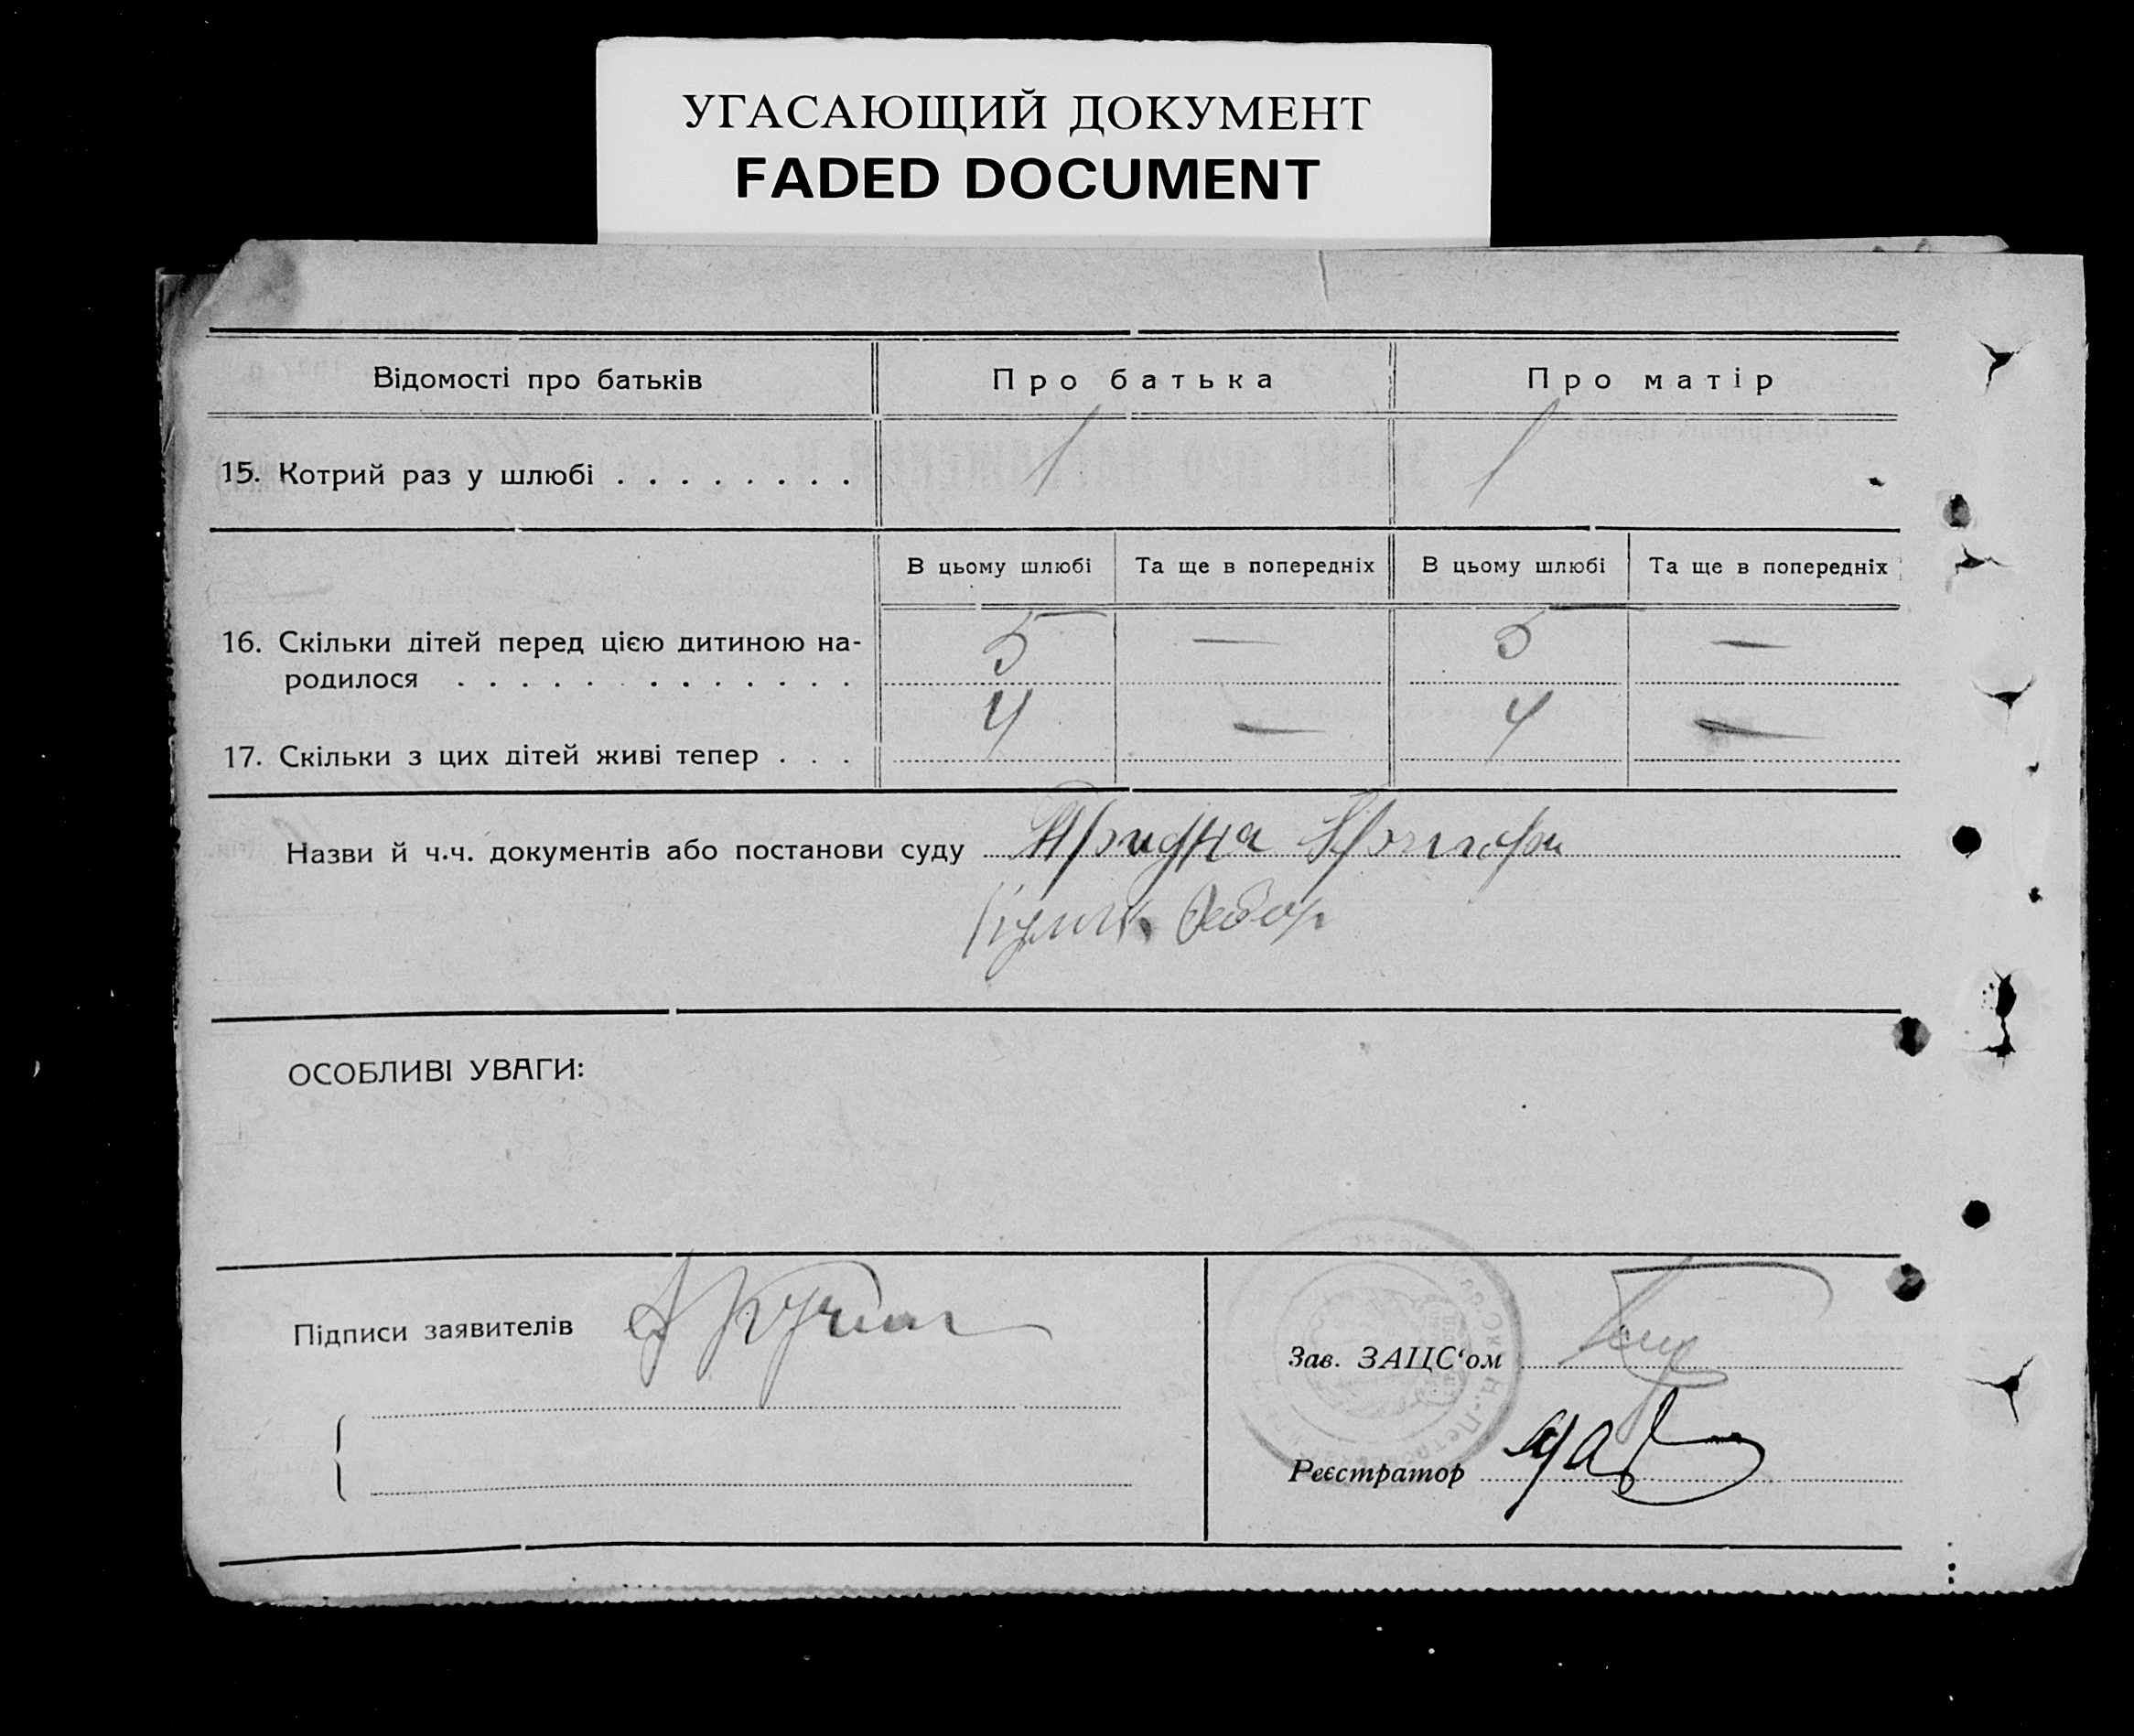 УГАСАЮЩИЙ ДОКУМЕНТ
FADED DOCUMENT
Відомості про батьків
Про батька
Про матір
15. Котрий раз у шлюбі . . . . . . . .
1
1
В цьому шлюбі
Та ще в попередніх
В цьому шлюбі
Та ще в попередніх
16. Скільки дітей перед цією дитиною на-
родилося . . . . . . . . . . . . .
5
—
5
—
17. Скільки з цих дітей живі тепер . . .
4
—
4
—
Назви й ч.ч. документів або постанови суду
ОСОБЛИВІ УВАГИ:
Підписи заявителів
Зав. ЗАЦС‘ом
Реєстратор